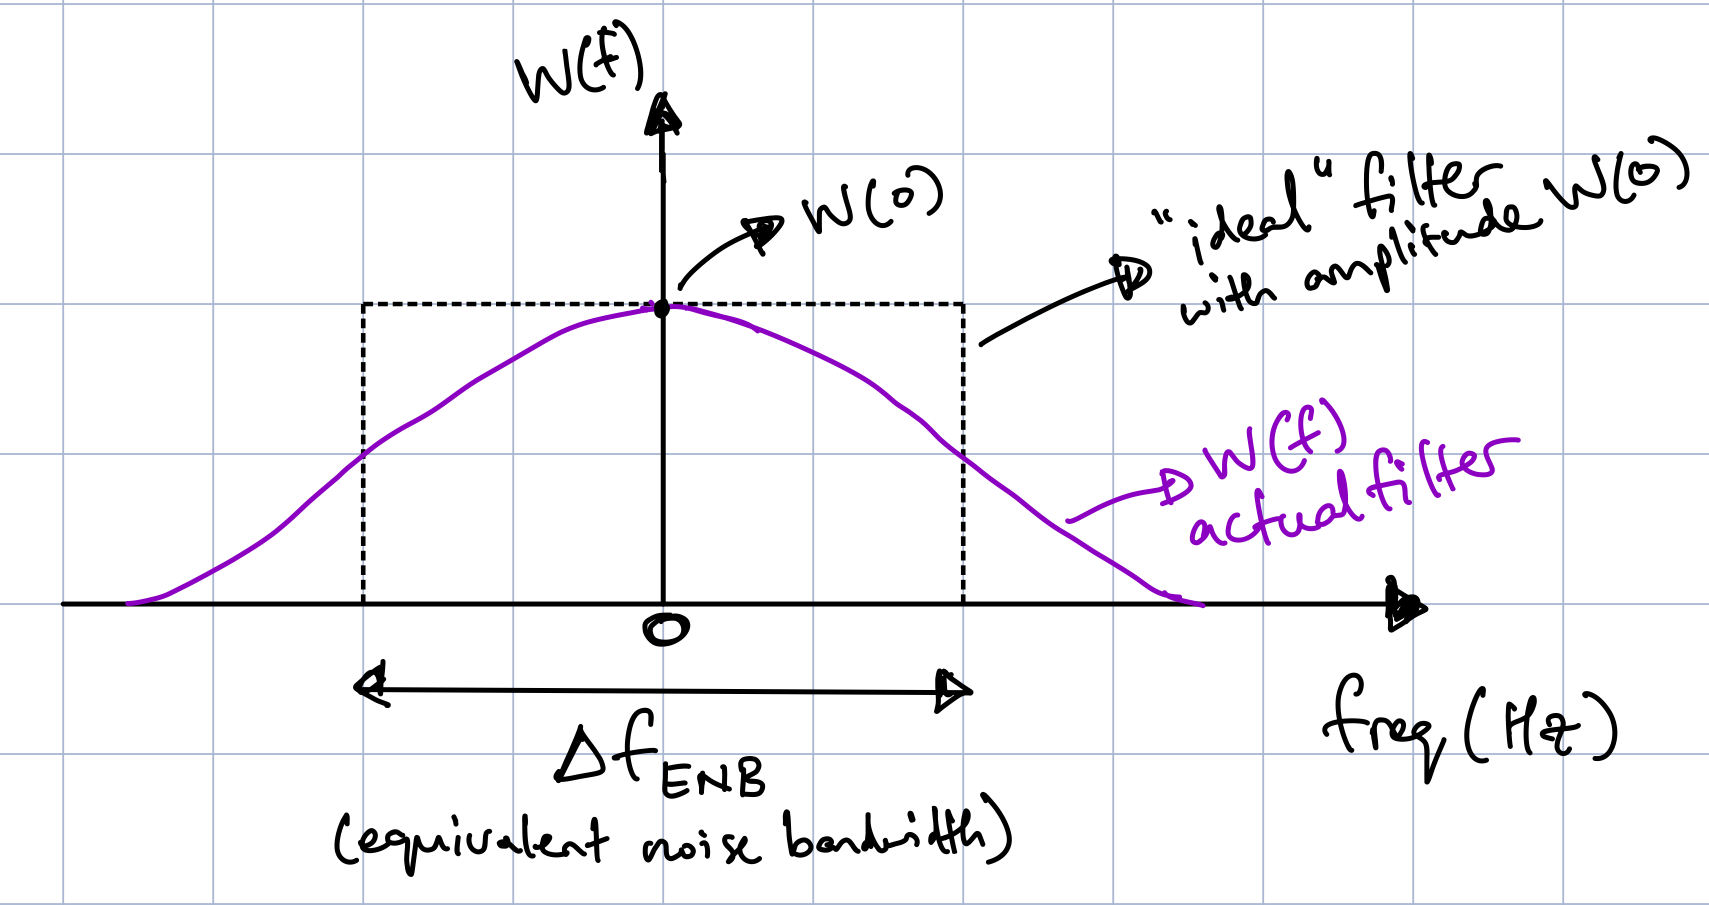 W(f)
W(0)
"ideal" filter
with amplitude W(0)
W(f)
actual filter
0
Δf_ENB
freq (Hz)
(equivalent noise bandwidth)